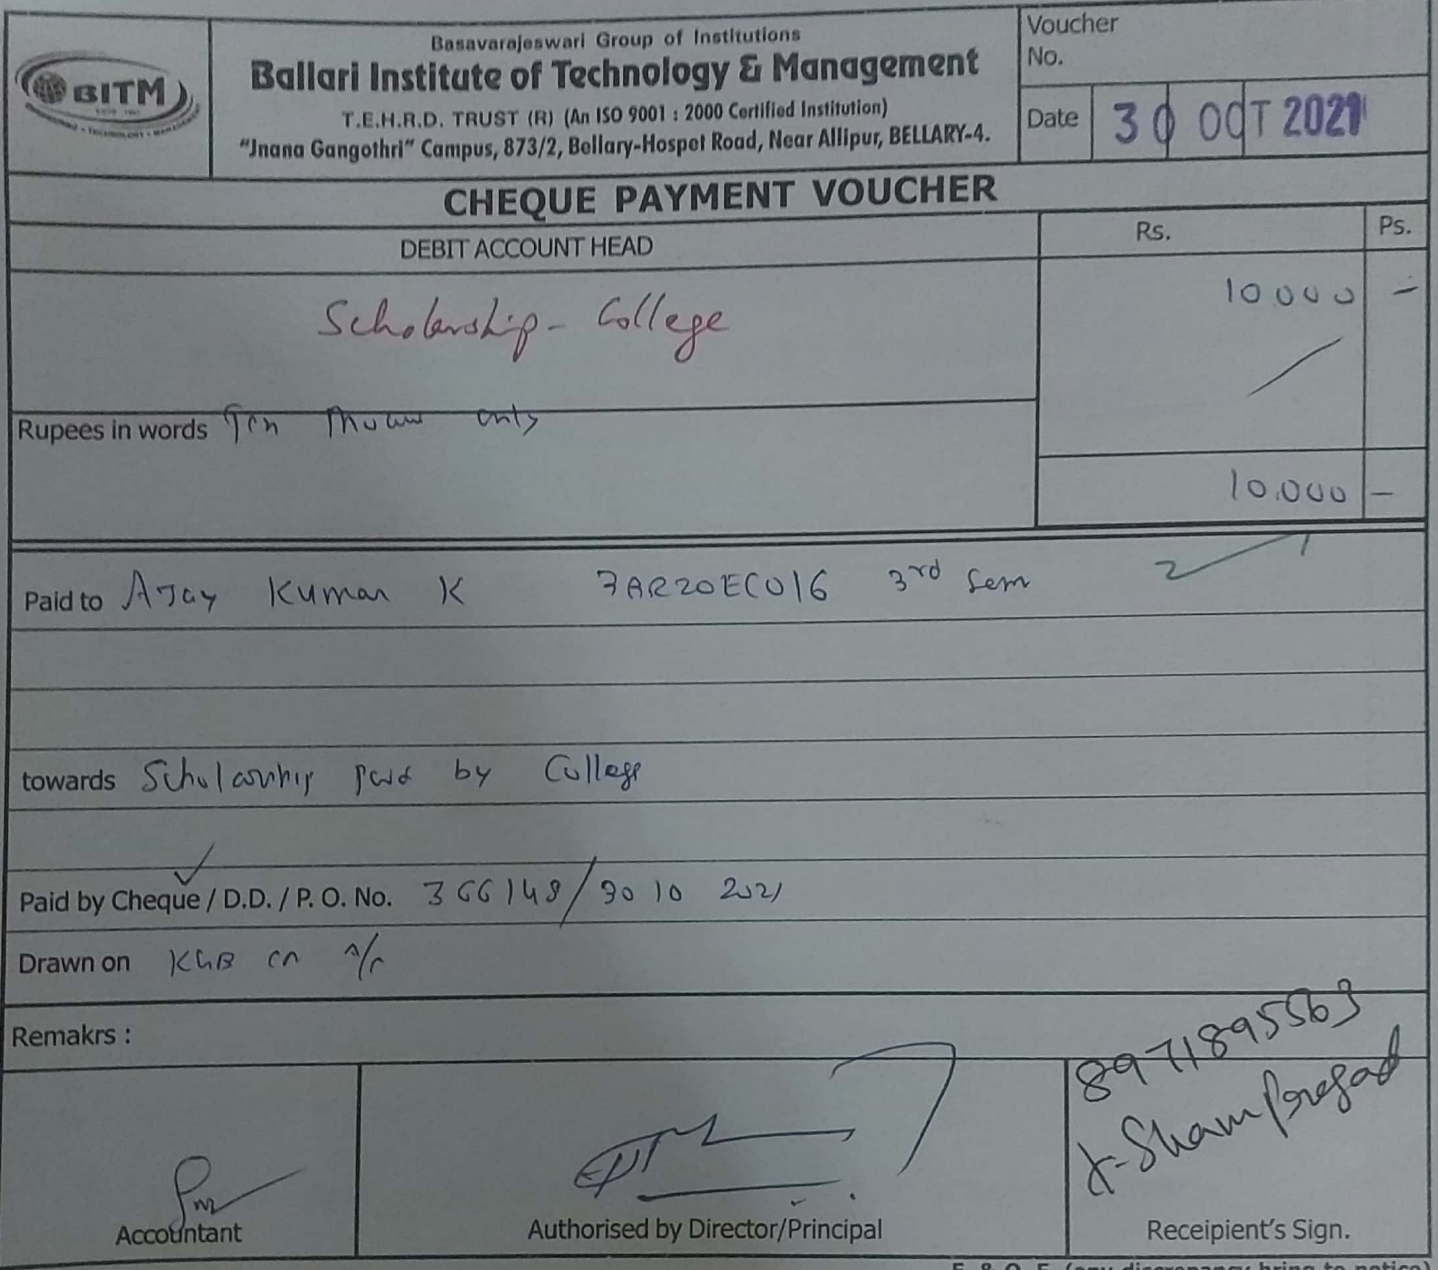 Basavarajeswari Group of Institutions
Ballari Institute of Technology & Management
T.E.H.R.D. TRUST (R) (An ISO 9001 : 2000 Certified Institution)
"Jnana Gangothri" Campus, 873/2, Bellary-Hospet Road, Near Allipur, BELLARY-4.
BITM
Voucher
No.
Date 30 OCT 2021
CHEQUE PAYMENT VOUCHER
DEBIT ACCOUNT HEAD Rs. Ps.
Scholarship - College 10000 -
Rupees in words Ten only
10.000 -
Paid to Ajay Kumar K 3AR20EC016 3rd Sem
towards Scholarship paid by College
Paid by Cheque / D.D. / P. O. No. 366148/30 10 2021
Drawn on KGB
Remakrs :
8971895563
K-Sham Prasad
Accountant Authorised by Director/Principal Receipient's Sign.
E. & O. E. (any discrepancy bring to notice)